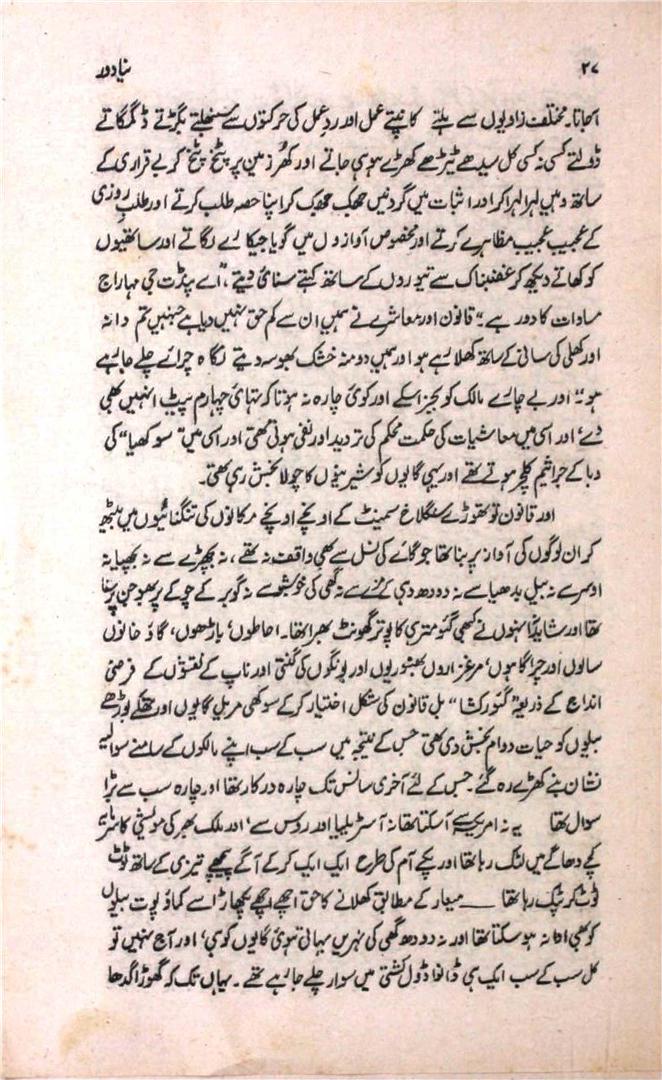 ۲۷ نیا دور
آجاتا۔ مختلف زاویوں سے ہلتے کانپتے عمل اور ردِ عمل کی حرکتوں سے سنبھلتے بگڑتے ڈگمگاتے
ڈولتے کسی نہ کسی کل سیدھے ٹیڑھے کھڑے ہو ہی جاتے اور کُھر زمین پر پٹخ پٹخ کر بے قراری کے
ساتھ وہیں لہرا لہرا کر اور اثبات میں گردنیں جھٹک جھٹک کر اپنا حصہ طلب کرتے اور طلبِ روزی
کے عجیب عجیب مظاہرے کرتے اور مخصوص آوازوں میں گویا جیکارے لگاتے اور ساتھیوں
کو کھاتے دیکھ کر غضبناک سے تیوروں کے ساتھ کہتے سنائی دیتے "اے پنڈت جی مہاراج
مساوات کا دور ہے۔ قانون اور معاشرے نے ہمیں ان سے کم حق نہیں دیا ہے جنہیں تم دانہ
اور کھلی کی سانی کے ساتھ کھلا رہے ہو اور ہمیں دو منہ خشک بھوسہ دیتے لگاہ چرائے چلے جا رہے
ہو" اور بے چارے مالک کو بجز اسکے اور کوئی چارہ نہ ہوتا کہ تہائی چہارم پیٹ انہیں بھی
دے اور اسی میں معاشیات کی حکمت محکم کی تردید اور نفی ہوتی تھی اور اسی میں "سوکھیا" کی
وبا کے جراثیم کلچر ہوتے تھے اور یہی گایوں کو شیرینیوں کا چولا بخش رہی تھی۔
اور قانون تو بھوڑے سنگلاخ سمینٹ کے اونچے اونچے مکانوں کی تنگنائیوں میں بیٹھ
کر ان لوگوں کی آواز پر بنا تھا جو گائے کی نسل سے بھی واقف نہ تھے، نہ بچھڑے سے نہ بچھیا نہ
اوسرے نہ بیل بدھیا سے نہ دودھ دہی کے مزے سے نہ گھی کی خوشبو سے نہ گوبر کے چوکے پر بھوجن
تھا اور شاید انہوں نے کبھی گئو متری کا پوتر گھونٹ بھرا تھا۔ احاطوں، باڑھوں، گاؤ خانوں
سالوں اور چراگاہوں، مرغزاروں بھنوریوں اور پونگوں کی گنتی اور ناپ کے نقشوں کے فرضی
اندراج کے ذریعہ "گئو رکشا" بل قانون کی شکل اختیار کر کے سوکھی مریل گایوں اور تھکے بوڑھے
بیلوں کو حیات دوام بخش دی تھی جس کے نتیجہ میں سب کے سب اپنے مالکوں کے سامنے سوالیہ
نشان بنے کھڑے رہ گئے۔ جس کے لئے آخری سانس تک چارہ درکار تھا اور چارہ سب سے بڑا
سوال تھا یہ نہ امریکہ سے آسکتا تھا نہ آسٹریلیا اور روس سے، اور ملک بھر کی مویشی کا سرمایہ
کچے دھاگے میں لٹک رہا تھا اور پکے آم کی طرح ایک ایک کر کے آگے پیچھے تیزی کے ساتھ ٹوٹ
ٹوٹ کر ٹپک رہا تھا ـــ معیار کے مطابق کھلانے کا حق اچھے اچھے پچھاڑا سے کماؤ پوت بیلوں
کو بھی ادا نہ ہو سکتا تھا اور نہ دودھ گھی کی نہریں بہاتی ہوئی گایوں کو ہی، اور آج نہیں تو
کل سب کے سب ایک ہی ڈانوا ڈول کشتی میں سوار چلے جا رہے تھے۔ یہاں تک کہ گھوڑا گدھا